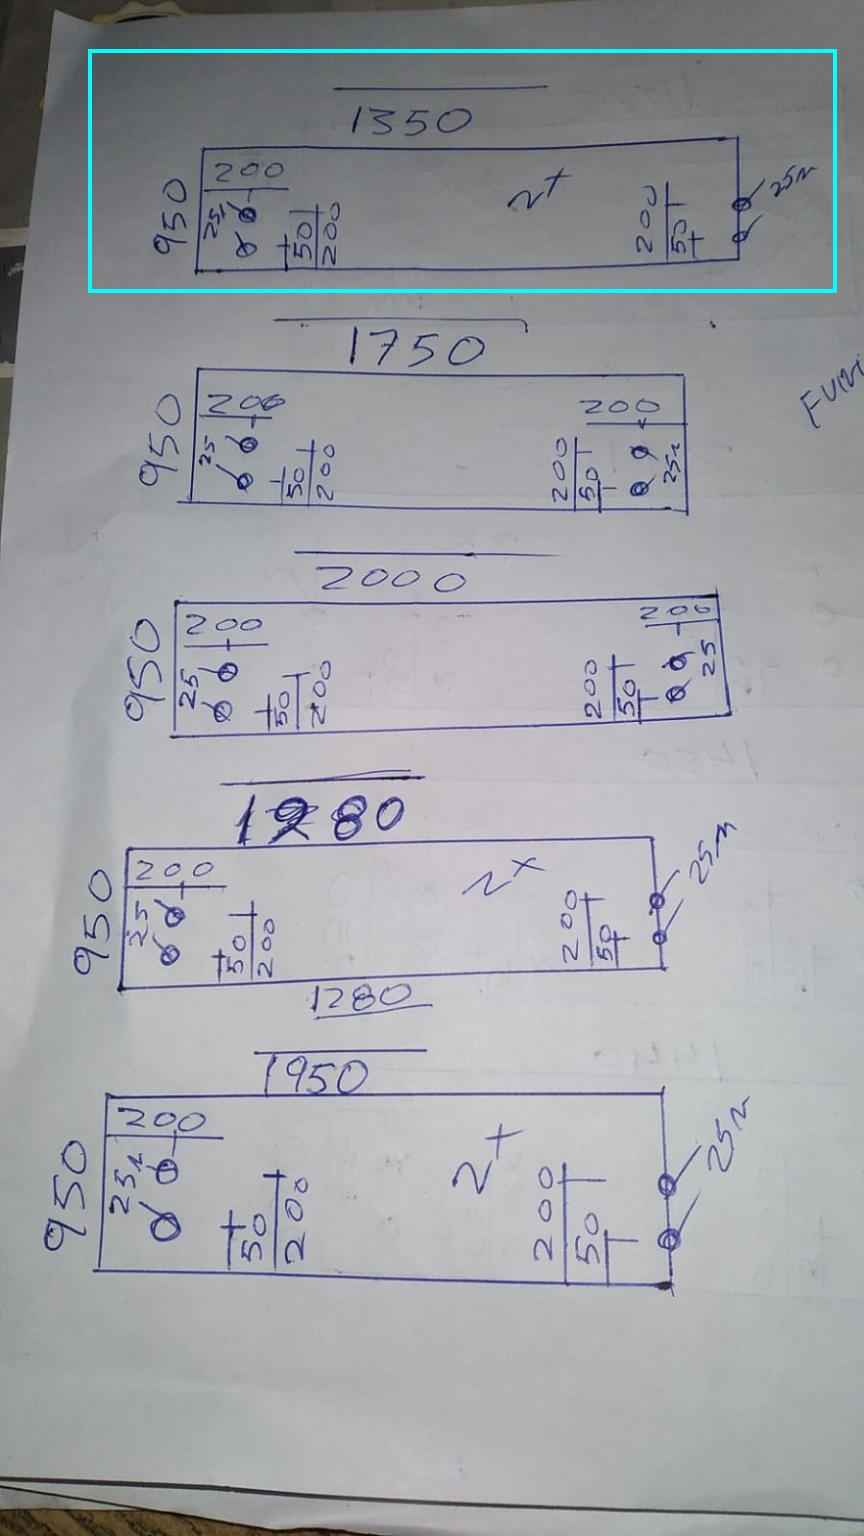 1350
200
950
25
50
200
2+
200
50
25
1750
200
950
25
50
200
200
200
50
25
2000
200
950
25
50
200
200
200
50
25
1280
200
950
25
50
200
2x
200
50
25
1280
1950
200
950
25
50
200
2+
200
50
25